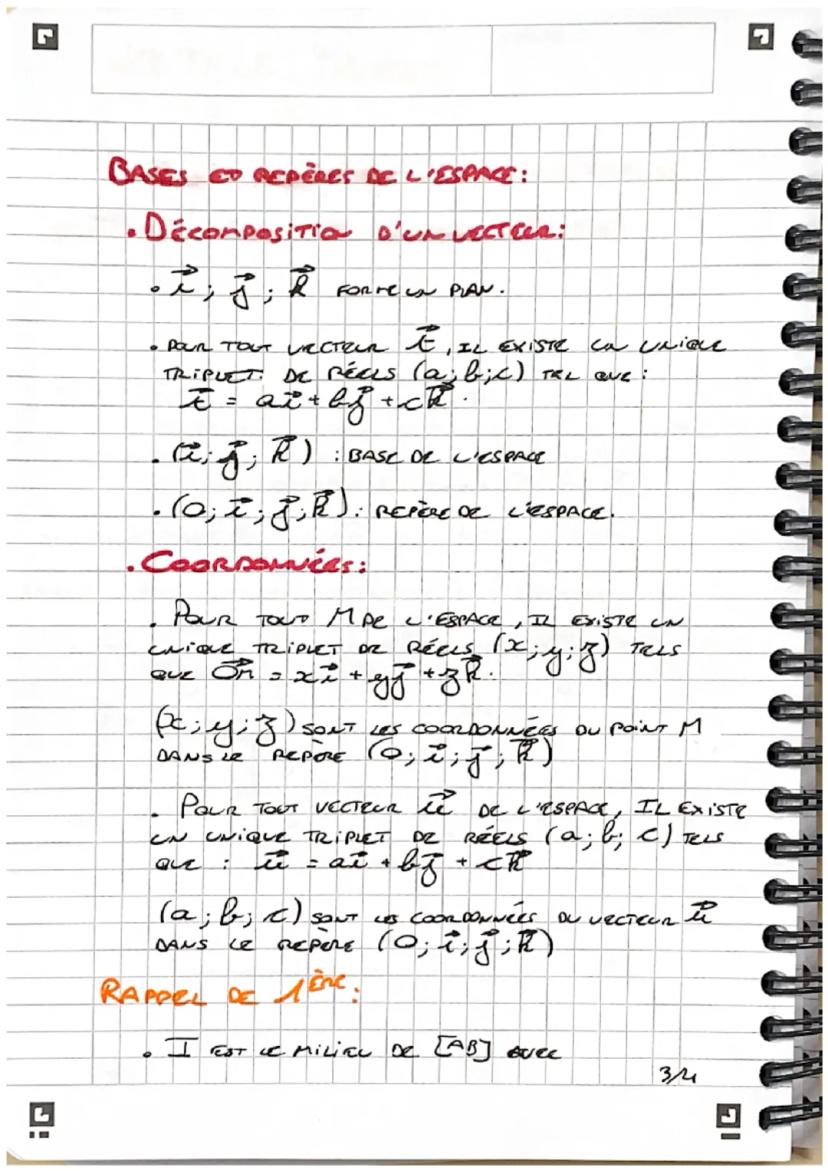 BASES ET REPÈRES DE L'ESPACE:
• DÉCOMPOSITION D'UN VECTEUR:
• i⃗ ; j⃗ ; k⃗ FORME UN PLAN.
• POUR TOUT VECTEUR t⃗, IL EXISTE UN UNIQUE
TRIPLET DE RÉELS (a;b;c) TEL QUE :
t⃗ = ai⃗ + bj⃗ + ck⃗.
• (i⃗; j⃗; k⃗) : BASE DE L'ESPACE
• (O; i⃗; j⃗; k⃗) : REPÈRE DE L'ESPACE.
• COORDONNÉES:
• POUR TOUT M DE L'ESPACE, IL EXISTE UN
UNIQUE TRIPLET DE RÉELS (x;y;z) TELS
QUE OM⃗ = xi⃗ + yj⃗ + zk⃗.
(x;y;z) SONT LES COORDONNÉES DU POINT M
DANS LE REPÈRE (O; i⃗; j⃗; k⃗)
• POUR TOUT VECTEUR u⃗ DE L'ESPACE, IL EXISTE
UN UNIQUE TRIPLET DE RÉELS (a; b; c) TELS
QUE : u⃗ = ai⃗ + bj⃗ + ck⃗
(a; b; c) SONT LES COORDONNÉES DU VECTEUR u⃗
DANS LE REPÈRE (O; i⃗; j⃗; k⃗)
RAPPEL DE 1ÈRE:
• I EST LE MILIEU DE [AB] AVEC
3/4